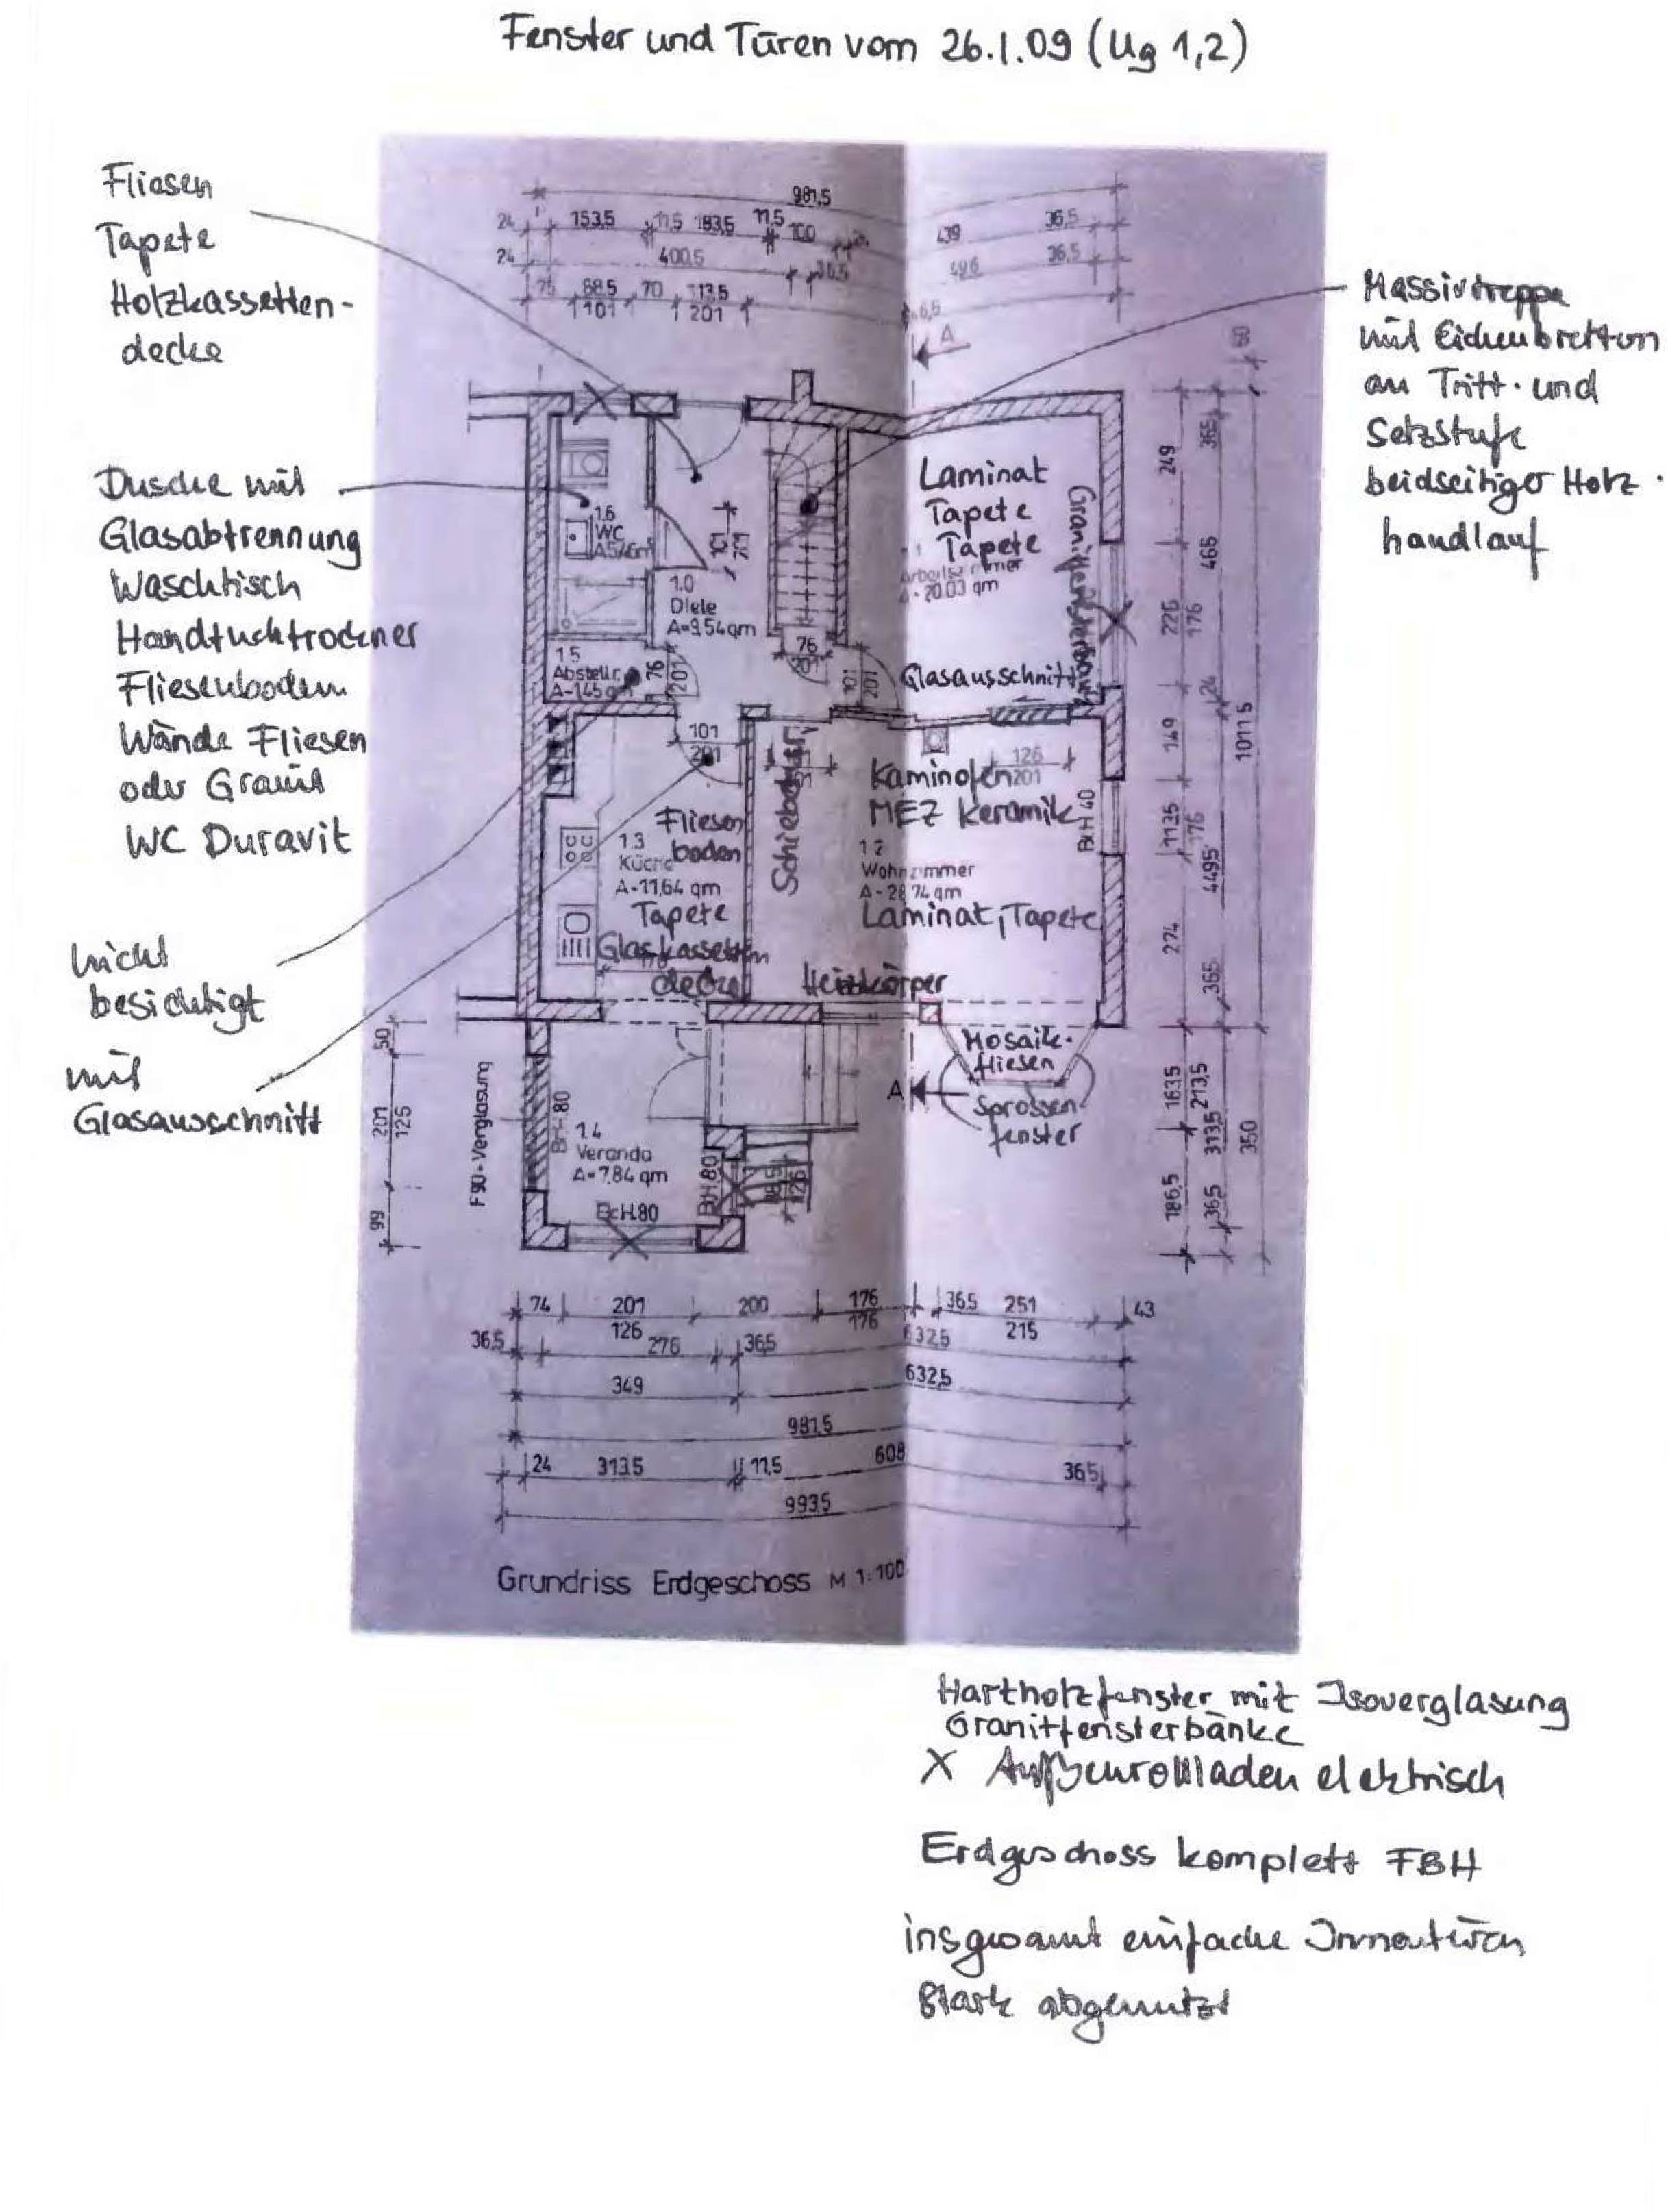 Fenster und Türen vom 26.1.09 (Ug 1,2)
Fliesen
Tapete
Holzkassetten-
decke
Dusche mit
Glasabtrennung
Waschtisch
Handtuchtrockner
Fliesenboden
Wände Fliesen
oder Granit
WC Duravit
nicht
besichtigt
mit
Glasausschnitt
Massivtreppe
mit Eichenbretten
an Tritt- und
Setzstufe
beidseitiger Holz-
handlauf
981,5
24 153,5 11,5 183,5 11,5 100 439 36,5
24 400,5 36,5 496 36,5
75 88,5 70 113,5
101 201
A
Laminat
Tapete
Tapete
Arbeitszimmer
A-20.03 qm
Granitfensterbank
Glasausschnitt
1.6
WC
1.0
Diele
A=9.54qm
101
201
1.5
Abstellr.
A-1.45 qm
76
201
76
201
101
201
101
201
Schiebetür
126
201
Kaminofen
MEZ Keramik
BrH 40
1.2
Wohnzimmer
A-28.74 qm
Laminat, Tapete
Fliesen
boden
1.3
Küche
A-11,64 qm
Tapete
Glaskassetten
decke
Heizkörper
Mosaik-
fliesen
Sprossen-
fenster
A
F90-Verglasung
BrH.80
1.4
Veranda
A=7.84 qm
BrH.80
BrH.80
50
201
125
99
249
226
176
149
113,5
176
274
163,5
186,5
36,5
465
24
449,5
36,5
213,5
313,5
36,5
1011,5
350
74 201 200 176 36,5 251 43
126 176 215
36,5 276 36,5 632,5
349 632,5
981,5
24 313,5 11,5 608 36,5
993,5
Grundriss Erdgeschoss M 1:100
Hartholzfenster mit Isoverglasung
Granitfensterbänke
X Außenrollladen elektrisch
Erdgeschoss komplett FBH
insgesamt einfache Innentüren
stark abgenutzt